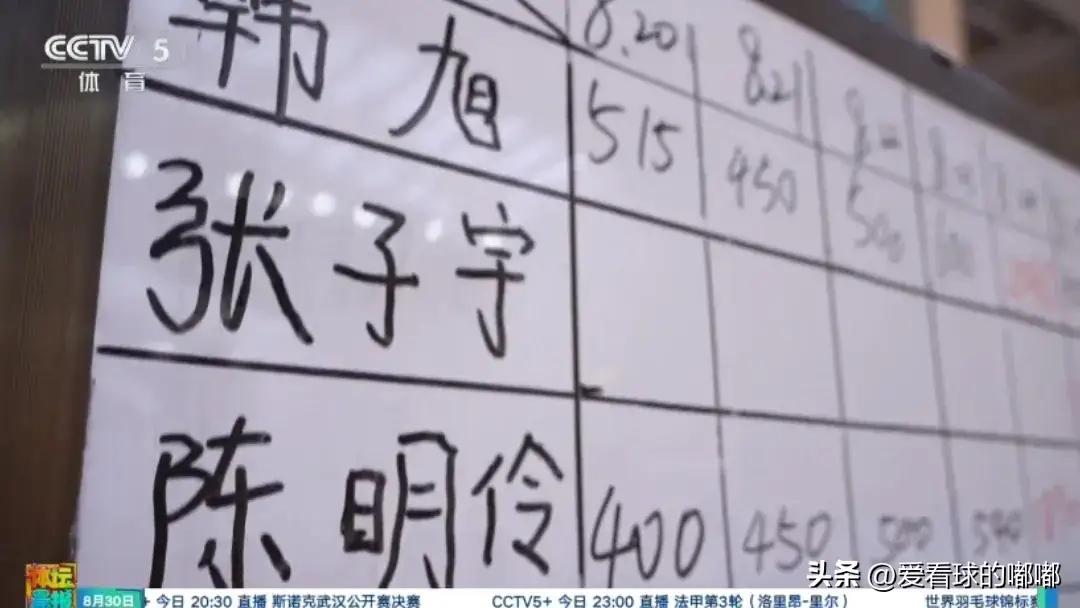 CCTV 5
体育
8.20 8.21
韩旭 515 450 500
张子宇
陈明伶 400 450 500 540
体坛晨报
8月30日 + 今日 20:30 直播 斯诺克武汉公开赛决赛 CCTV5+ 今日 23:00 直播 法甲第3轮（洛里昂-里尔） 世界羽毛球锦标赛
头条 @爱看球的嘟嘟